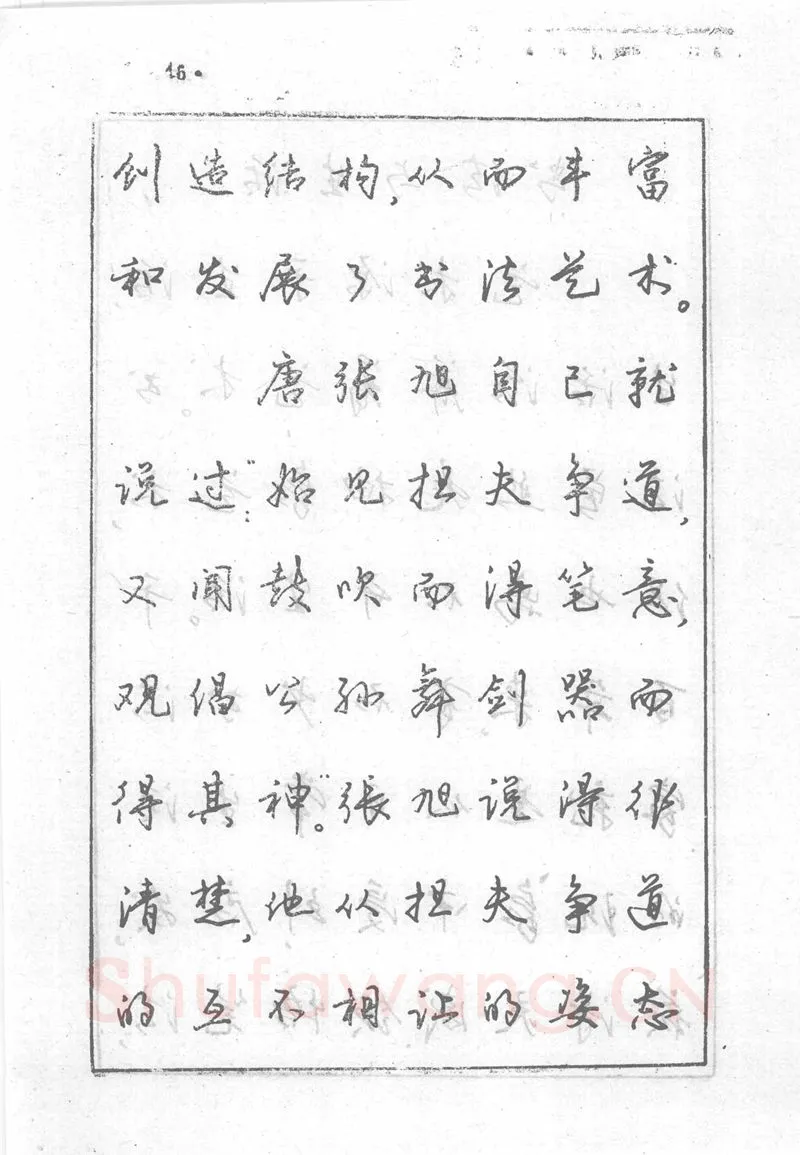 16.
创造结构,从而丰富
和发展了书法艺术。
唐张旭自己就
说过:"始见担夫争道,
又闻鼓吹而得笔意,
观倡公孙舞剑器而
得其神。"张旭说得很
清楚,他从担夫争道
的互不相让的姿态
Shufawang.CN